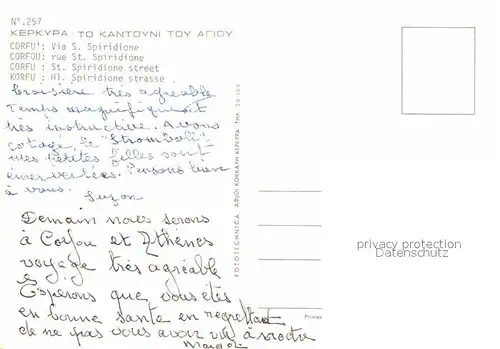 Nº.257
ΚΕΡΚΥΡΑ: ΤΟ ΚΑΝΤΟΥΝΙ ΤΟΥ ΑΓΙΟΥ
CORFU': Via S. Spiridione
CORFOU: rue St. Spiridione
CORFU : St. Spiridione street
KORFU : Hl. Spiridione strasse
Croisière très agréable
Temps magnifique et
très instructive. Avons
cotoyé le "Stromboli"
mes petites filles sont
émerveillées. Pensons bien
à vous.
Suzon
Demain nous serons
à Corfou et Athènes
voyage très agréable
Esperons que vous êtes
en bonne santé en regrettant
de ne pas vous avoir vu à notre
FOTOTECHNICA ΑΦΟΙ ΚΟΚΚΑΛΗ ΚΕΡΚΥΡΑ ΤΗΛ.
privacy protection
Datenschutz
Printed